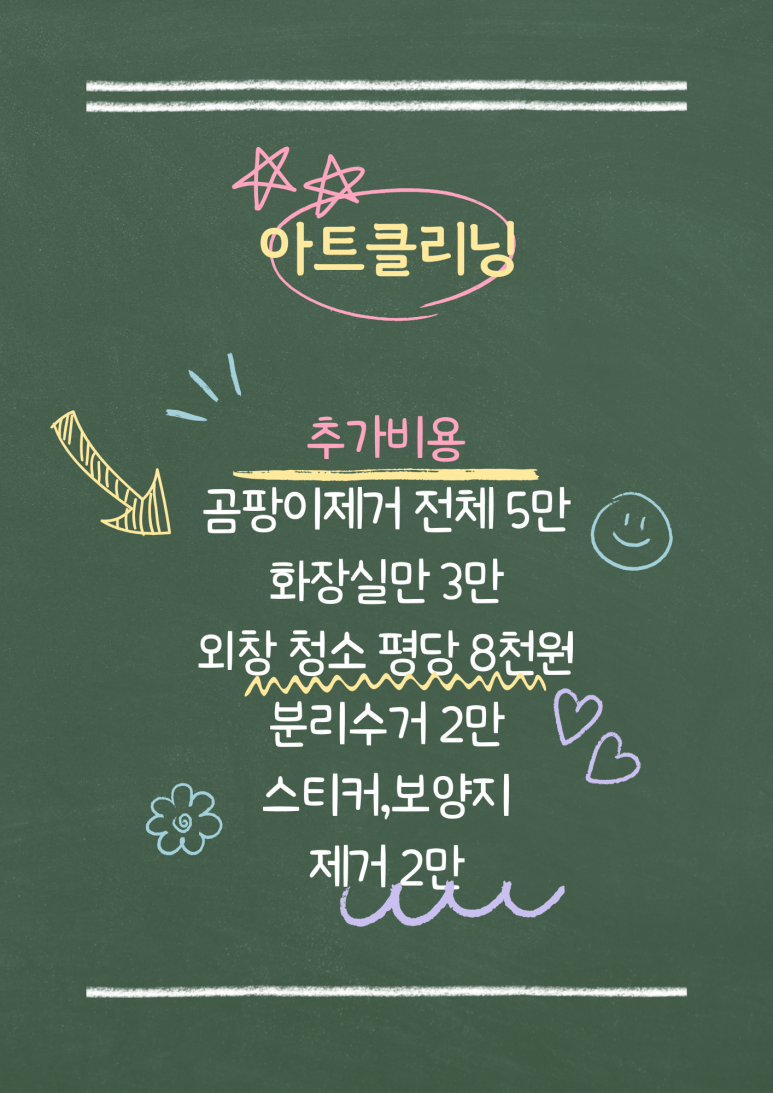 아트클리닝
추가비용
곰팡이제거 전체 5만
화장실만 3만
외창 청소 평당 8천원
분리수거 2만
스티커,보양지
제거 2만